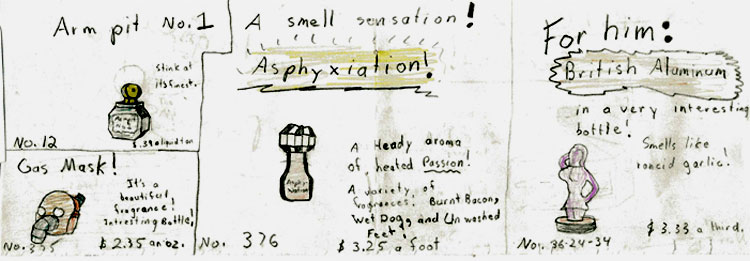 Arm pit No. 1
Stink at
its finest.
No. 12
$.39 a liquid ton
Gas Mask!
It's a
beautiful
fragrance!
Intresting Bottle!
No. 395
$ 2.35 an oz.
A smell sensation!
Asphyxiation!
A Heady aroma
of heated Passion!
A variety of
fragrances: Burnt Bacon,
Wet Dogg and Un washed
Feet!
No. 376
$ 3.25 a foot
For him:
British Aluminum
in a very interesting
bottle!
Smells like
rancid garlic!
No. 36-24-34
$ 3.33 a third.